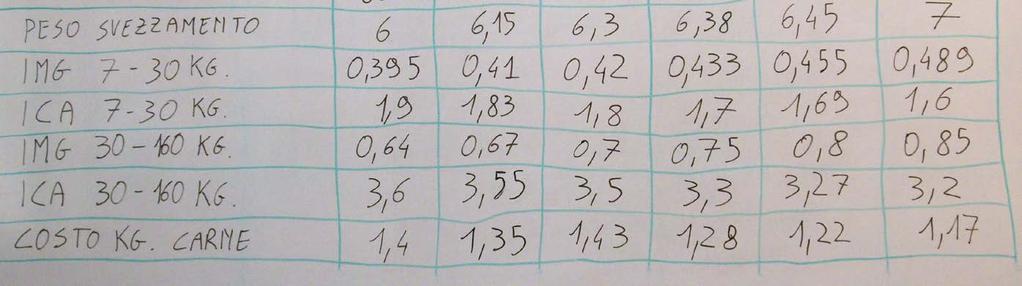 PESO SVEZZAMENTO 6 6,15 6,3 6,38 6,45 7
IMG 7-30 KG. 0,395 0,41 0,42 0,433 0,455 0,489
ICA 7-30 KG. 1,9 1,83 1,8 1,7 1,69 1,6
IMG 30-160 KG. 0,64 0,67 0,7 0,75 0,8 0,85
ICA 30-160 KG. 3,6 3,55 3,5 3,3 3,27 3,2
COSTO KG. CARNE 1,4 1,35 1,43 1,28 1,22 1,17